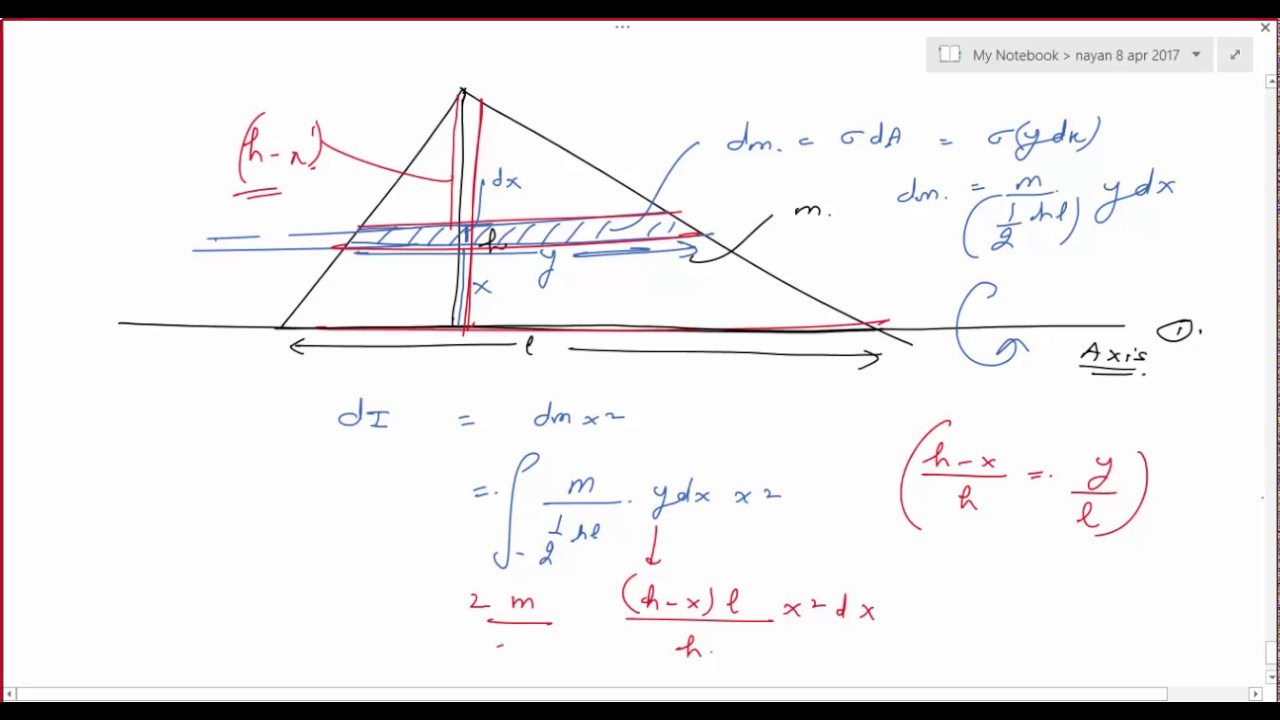 My Notebook > nayan 8 apr 2017
(h-x)
dx
h
y
x
m.
l
dm. = σdA = σ(ydx)
dm. = m/(1/2 hl) ydx
Axis
1.
dI = dm x²
= ∫ m/(1/2 hl) . ydx x²
(h-x/h = y/l)
2 m (h-x)l/h. x²dx